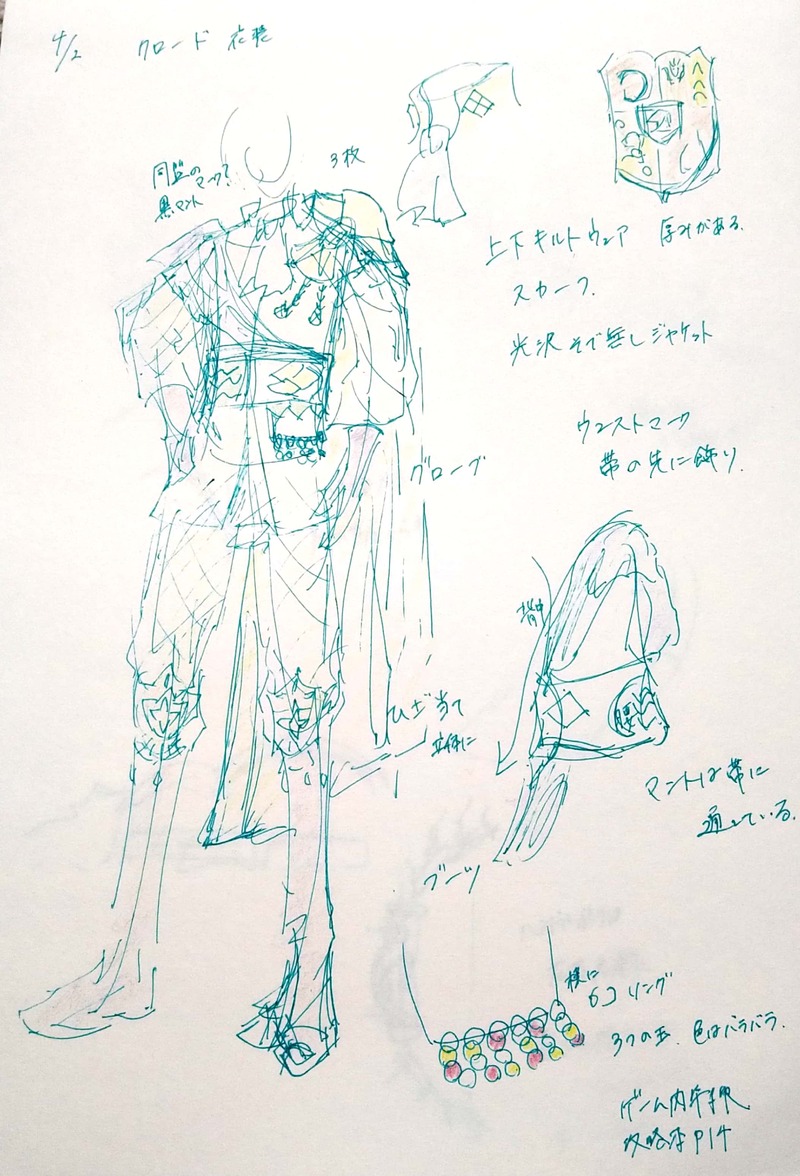 4/2 クロード 衣装
同盟の
マーク?
黒マント
3枚
上下キルトウェア 厚みがある。
スカーフ。
光沢 そで無しジャケット
ウエストマーク
帯の先に飾り。
グローブ
背中
腰
ひざ当て
立体に
マントは帯に
通している。
ブーツ
横に
6コ リング
3つの玉、色はバラバラ。
ゲーム内
攻略本P14